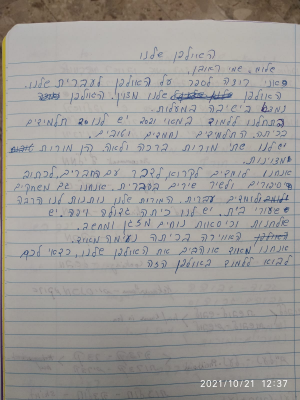 האולפן שלנו
שלום, שמי ראובן.
אני רוצה לספר על האולפן לעברית שלנו.
האולפן שלנו מצוין. האולפן
נמצא בישיבה במעלות.
התחלנו ללמוד במאי 2021 יש לנו 20 תלמידים
בכיתה. התלמידים נחמדים וטובים.
יש לנו שתי מורות ברכה ולאה. הן מורות
מצוינות.
אנחנו לומדים לקרוא, לדבר עם החברים, לכתוב
סיפורים ולשיר שירים בעברית. אנחנו גם משחקים
ולומדים עברית. המורות שלנו נותנות לנו הרבה
שעורי בית. יש לנו כיתה גדולה ויפה. יש
שולחנות וכיסאות נוחים מזגן ומחשב.
האווירה בכיתה נעימה מאוד.
אנחנו מאוד אוהבים את האולפן שלנו. כדאי לכם
לבוא ללמוד באולפן הזה
2021/10/21 12:37